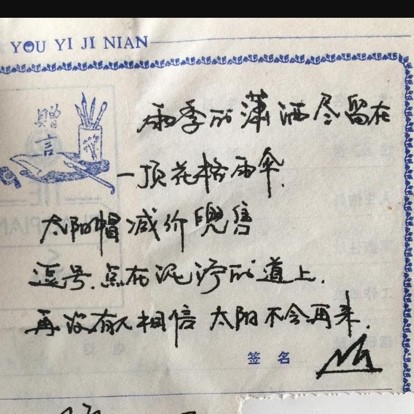 YOU YI JI NIAN
赠言
雨季的潇洒尽留在
一顶花格雨伞.
太阳帽减价兜售
逗号.点在泥泞的道上.
再没有人相信 太阳不会再来.
签名